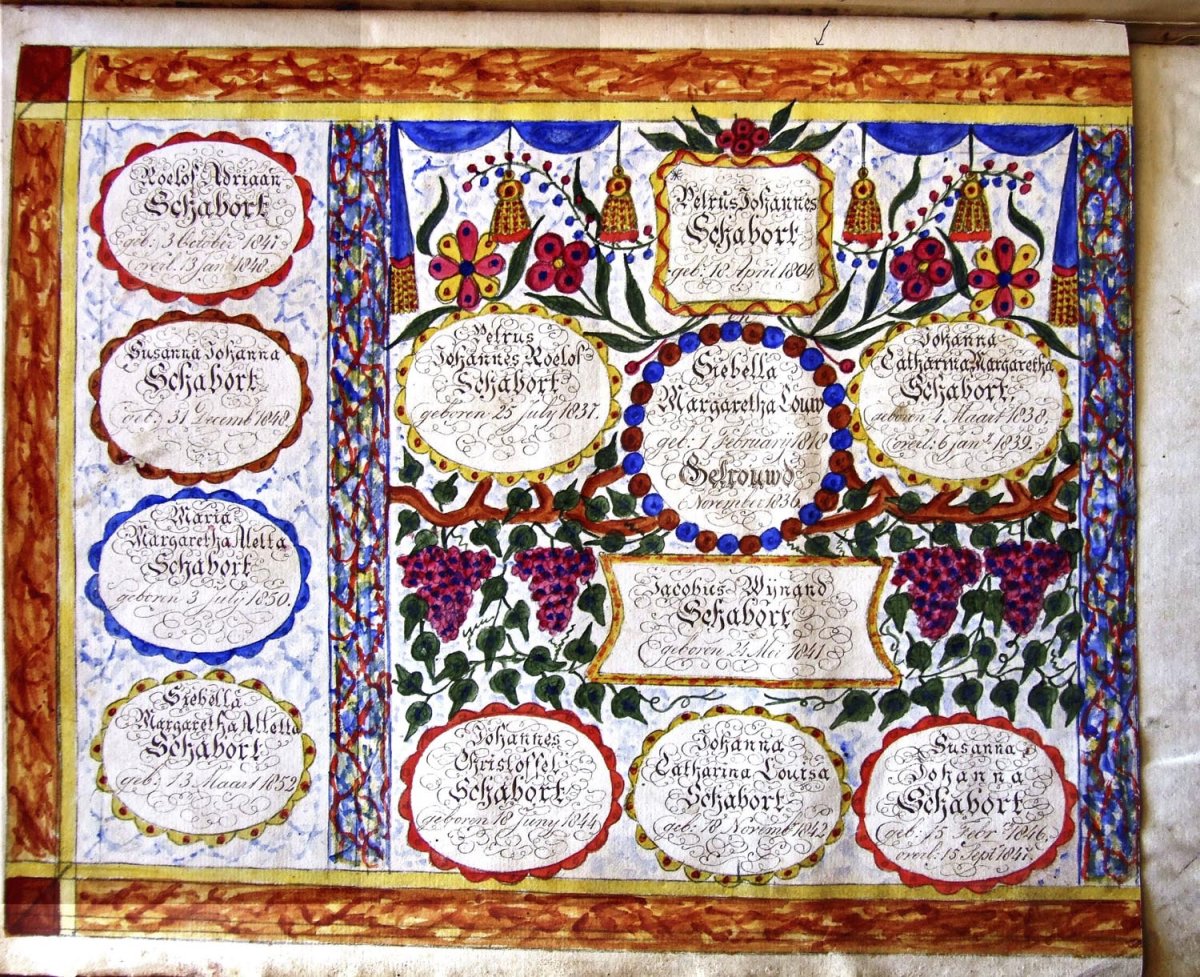 Roelof Adriaan
Schabort
geb: 3 October 1847
overl. 13 Jan. 1848
Susanna Johanna
Schabort
geb: 31 Decemb 1848
Maria
Margaretha Aletta
Schabort
geboren 3 july 1850.
Siebella
Margaretha Alletta
Schabort
geb: 13 Maart 1852
* Petrus Johannes
Schabort
geb: 18 April 1804
Petrus
Johannes Roelof
Schabort
geboren 25 july 1837.
Siebella
Margaretha Louw
geb: 1 February 1818
Getrouwd
November 1836
Johanna
Catharina Margaretha
Schabort,
geboren 4 Maart 1838.
overl: 6 jan. 1839.
Jacobus Wÿnand
Schabort
geboren 21 Mei 1841
Johannes
Christoffel
Schabort
geboren 18 Juny 1844
Johanna
Catharina Louisa
Schabort
geb: 18 Novemb. 1842
Susanna
Johanna
Schabort
geb: 15 Febr 1846,
overl: 15 Sept 1847.